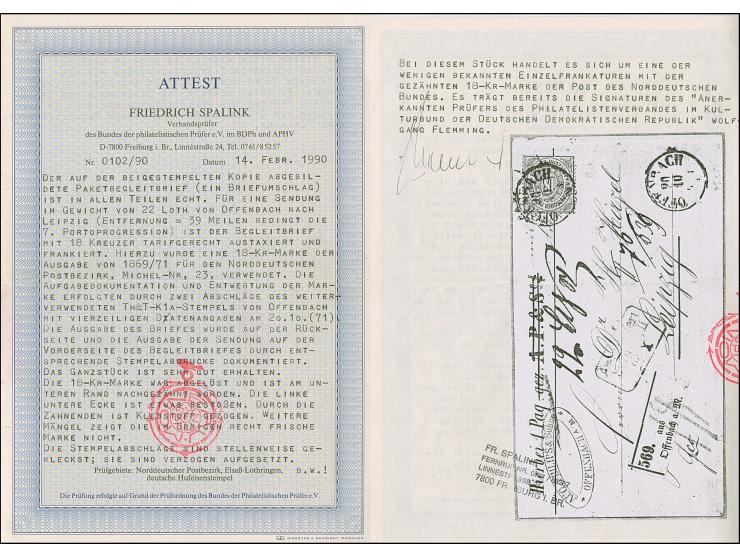 ATTEST
FRIEDRICH SPALINK
Verbandsprüfer
des Bundes der philatelistischen Prüfer e.V. im BDPh und APHV
D-7800 Freiburg i. Br., Linnéstraße 24, Tel. 0761/85257
Nr. 0102/90 Datum 14. FEBR. 1990
DER AUF DER BEIGESTEMPELTEN KOPIE ABGEBIL-
DETE PAKETBEGLEITBRIEF (EIN BRIEFUMSCHLAG)
IST IN ALLEN TEILEN ECHT. FÜR EINE SENDUNG
IM GEWICHT VON 22 LOTH VON OFFENBACH NACH
LEIPZIG (ENTFERNUNG = 39 MEILEN BEDINGT DIE
7. PORTOPROGRESSION) IST DER BEGLEITBRIEF
MIT 18 KREUZER TARIFGERECHT AUSTAXIERT UND
FRANKIERT. HIERZU WURDE EINE 18-KR-MARKE DER
AUSGABE VON 1869/71 FÜR DEN NORDDEUTSCHEN
POSTBEZIRK, MICHEL-NR. 23, VERWENDET. DIE
AUFGABEDOKUMENTATION UND ENTWERTUNG DER MAR-
KE ERFOLGTEN DURCH ZWEI ABSCHLÄGE DES WEITER-
VERWENDETEN TH&T-K1A-STEMPELS VON OFFENBACH
MIT VIERZEILIGEN DATENANGABEN AM 20.10.(71).
DIE AUSGABE DES BRIEFES WURDE AUF DER RÜCK-
SEITE UND DIE AUSGABE DER SENDUNG AUF DER
VORDERSEITE DES BEGLEITBRIEFES DURCH ENT-
SPRECHENDE STEMPELABDRUCKE DOKUMENTIERT.
DAS GANZSTÜCK IST SEHR GUT ERHALTEN.
DIE 18-KR-MARKE WAR ABGELÖST UND IST AM UN-
TEREN RAND NACHGEZÄHNT WORDEN. DIE LINKE
UNTERE ECKE IST ETWAS BESTOßEN. DURCH DIE
ZAHNENDEN IST KLEBSTOFF GEZOGEN. WEITERE
MÄNGEL ZEIGT DIE IM ÜBRIGEN RECHT FRISCHE
MARKE NICHT.
DIE STEMPELABSCHLÄGE SIND STELLENWEISE GE-
KLECKST; SIE SIND VERZOGEN AUFGESETZT.
Prüfgebiete: Norddeutscher Postbezirk, Elsaß-Lothringen, B.W.!
deutsche Hufeisenstempel
Die Prüfung erfolgte auf Grund der Prüfordnung des Bundes der Philatelistischen Prüfer e.V.
GIESECKE & DEVRIENT MÜNCHEN
BEI DIESEM STÜCK HANDELT ES SICH UM EINE DER
WENIGEN BEKANNTEN EINZELFRANKATUREN MIT DER
GEZÄHNTEN 18-KR-MARKE DER POST DES NORDDEUTSCHEN
BUNDES. ES TRÄGT BEREITS DIE SIGNATUREN DES "ANER-
KANNTEN PRÜFERS DES PHILATELISTENVERBANDES IM KUL-
TURBUND DER DEUTSCHEN DEMOKRATISCHEN REPUBLIK" WOLF-
GANG FLEMMING.
OFFENBACH
20
10
Leipzig
569. aus
Offenbach a. M.
FR. SPALINK
7800 FREIBURG I. BR.